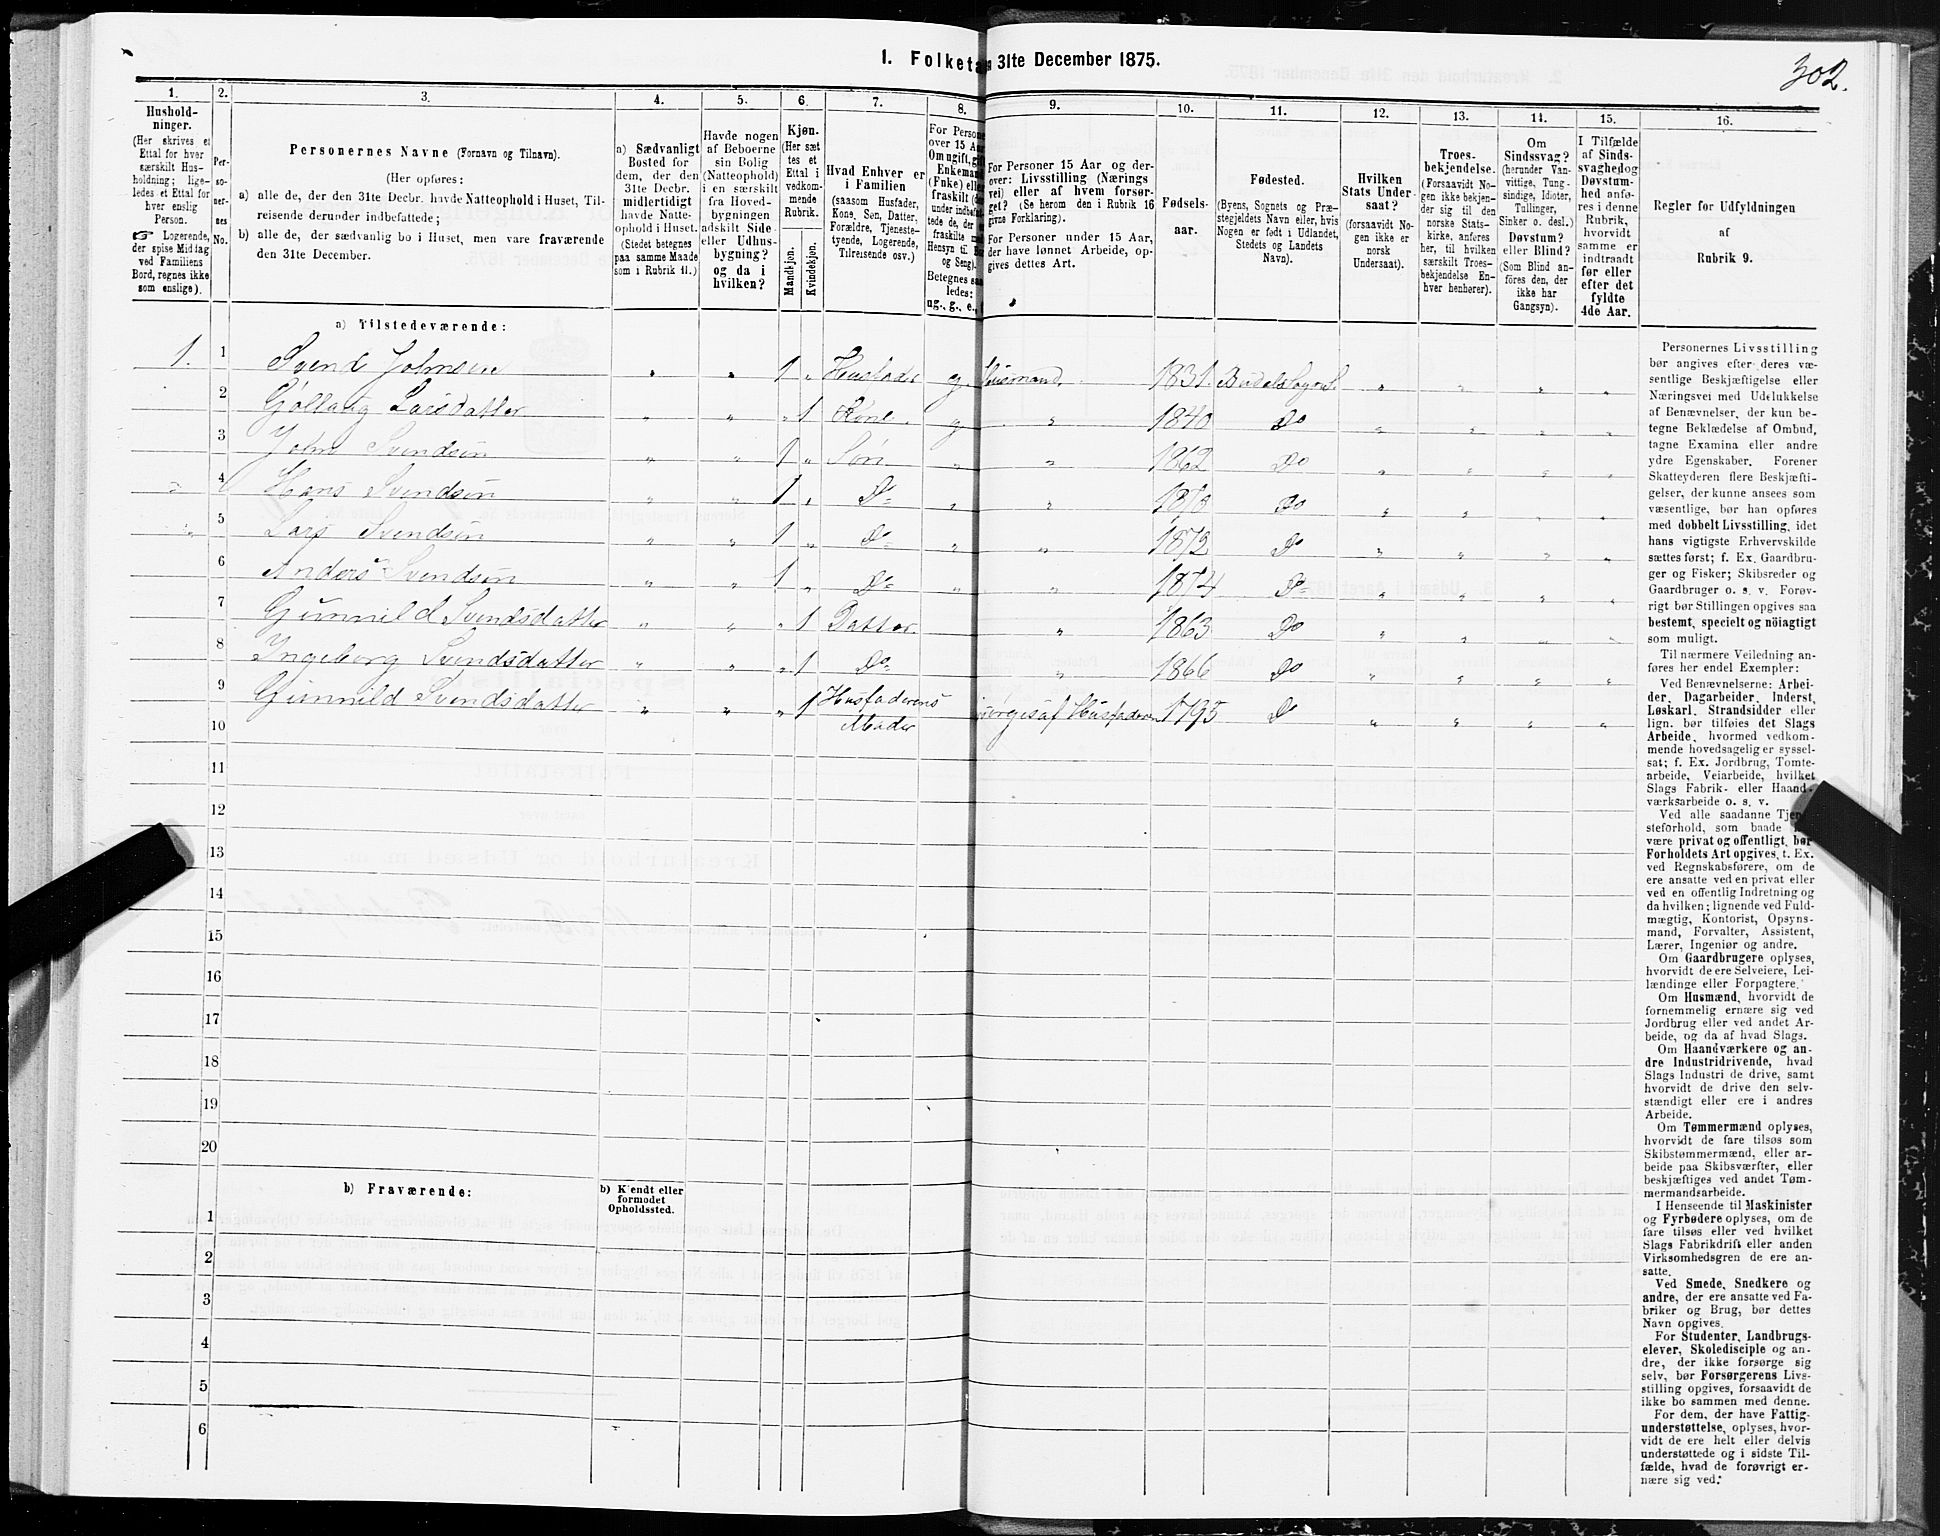 302.
1. Folketal 31te December 1875.
1.
Hushold-
ninger.
(Her skrives et
Ettal for hver
særskilt Hus-
holdning; lige-
ledes et Ettal for
hver enslig
Person.
☞ Logerende,
der spise Middag
ved Familiens
Bord, regnes ikke
som enslige).
2.
Per-
so-
ner-
nes
No.
3.
Personernes Navne (Fornavn og Tilnavn).
(Her opføres:
a) alle de, der den 31te Decbr. havde Natteophold i Huset, Til-
reisende derunder indbefattede;
b) alle de, der sædvanlig bo i Huset, men vare fraværende
den 31te December.
4.
a) Sædvanligt
Bosted for
dem, der den
31te Decbr.
midlertidigt
havde Natte-
ophold i Huset.
(Stedet betegnes
paa samme Maade
som i Rubrik 11.)
5.
Havde nogen
af Beboerne
sin Bolig
(Natteophold)
i en særskilt
fra Hoved-
bygningen
adskilt Side-
eller Udhus-
bygning?
og da i
hvilken?
6.
Kjøn.
(Her sæt
tes et
Ettal i
vedkom-
mende
Rubrik.
Mandkjøn.
Kvindekjøn.
7.
Hvad Enhver er
i Familien
(saasom Husfader,
Kone, Søn, Datter,
Forældre, Tjeneste-
tyende, Logerende,
Tilreisende osv.)
8.
For Persone
over 15 Aar
Om ugift, gi
Enkeman
(Enke) elle
fraskilt (
under indbef
tede de, der
fraskilte m
Hensyn til B
og Seng).
Betegnes saa
ledes:
ug., g., e.,
9.
For Personer 15 Aar og der-
over: Livsstilling (Nærings
vei) eller af hvem forsør-
get? (Se herom den i Rubrik 16
givne Forklaring).
For Personer under 15 Aar,
der have lønnet Arbeide, op-
gives dettes Art.
10.
Fødsels-
aar.
11.
Fødested.
(Byens, Sognets og Præ-
stegjeldets Navn eller, hvis
Nogen er født i Udlandet,
Stedets og Landets
Navn).
12.
Hvilken
Stats Under-
saat?
(forsaavidt No-
gen ikke er
norsk
Undersaat).
13.
Troes-
bekjendelse.
(Forsaavidt No-
gen ikke bekjen-
der sig til den
norske Stats-
kirke, anføres
her, til hvilken
særskilt Troes-
bekjendelse En-
hver henhører).
14.
Om
Sindssvag?
(herunder Van-
vittige, Tung-
sindige, Idioter,
Tullinger,
Sinker o. desl.)
Døvstum?
eller Blind?
(Som Blind an-
føres den, der
ikke har
Gangsyn).
15.
I Tilfælde
af Sinds-
svaghed og
Døvstum-
hed anfø-
res i denne
Rubrik,
hvorvidt
samme er
indtraadt
før eller
efter det
fyldte
4de Aar.
16.
Regler for Udfyldningen
af
Rubrik 9.
a) Tilstedeværende:
1. 1 Svend Johnsen " " 1 " Husfader g. Husmand. 1831. Budals Sogn " " " "
2 Gøllaug Larsdatter " " " 1 Kone. g " 1840 Do " " " "
3 John Svendsen " " 1 " Søn " " 1862 Do " " " "
4 Hans Svendsen " " 1 " Do " " 1870 Do " " " "
5 Lars Svendsen " " 1 " Do " " 1872 Do " " " "
6 Anders Svendsen " " 1 " Do " " 1874 Do " " " "
7 Gunnild Svendsdatter " " " 1 Datter. " 1863 Do " " " "
8 Ingeborg Svendsdatter " " " 1 Do " 1866 Do " " " "
9 Gunnild Svendsdatter " " " 1 Husfaderens af Husfaderen 1795 Do " " " "
10 Moder
11
12
13
14
15
16
17
18
19
20
b) Fraværende:
b) Kjendt eller
formodet
Opholdssted.
1
2
3
4
5
6
Personernes Livsstilling
bør angives efter deres væ-
sentlige Beskjæftigelse eller
Næringsvei med Udelukkelse
af Benævnelser, der kun be-
tegne Beklædelse af Ombud,
tagne Examina eller andre
ydre Egenskaber. Forener
Skatteyderen flere Beskjæfti-
gelser, der kunne ansees som
væsentlige, bør han opføres
med dobbelt Livsstilling, idet
hans vigtigste Erhvervskilde
sættes først; f. Ex. Gaardbru-
ger og Fisker; Skibsreder og
Gaardbruger o. s. v. Forøv-
rigt bør Stillingen opgives saa
bestemt, specielt og nöiagtigt
som muligt.
Til nærmere Veiledning an-
føres her endel Exempler:
Ved Benævnelserne: Arbei-
der, Dagarbeider, Inderst,
Løskarl, Strandsidder eller
lign. bør tilføies det Slags
Arbeide, hvormed vedkom-
mende hovedsagelig er syssel-
sat; f. Ex. Jordbrug, Tomte-
arbeide, Veiarbeide, hvilket
Slags Fabrik- eller Haand-
værksarbeide o. s. v.
Ved alle saadanne Tjen
steforhold, som baade
være privat og offentligt, bør
Forholdets Art opgives, t. Ex.
ved Regnskabsførere, om de
ere ansatte ved en privat eller
ved en offentlig Indretning og
da hvilken; lignende ved Fuld-
mægtig, Kontorist, Opsyns-
mand, Forvalter, Assistent,
Lærer, Ingeniør og andre.
Om Gaardbrugere oplyses,
hvorvidt de ere Selveiere, Lei-
lændinge eller Forpagtere.
Om Husmænd, hvorvidt de
fornemmelig ernære sig ved
Jordbrug eller ved andet Ar-
beide, og da af hvad Slags.
Om Haandværkere og an-
dre Industridrivende, hvad
Slags Industri de drive, samt
hvorvidt de drive den selv-
stændigt eller ere i andres
Arbeide.
Om Tømmermænd oplyses,
hvorvidt de fare tilsøs som
Skibstømmermænd, eller ar-
beide paa Skibsværfter, eller
beskjæftiges ved andet Tøm-
mermandsarbeide.
I Henseende til Maskinister
og Fyrbødere oplyses, om de
fare tilsøs eller ved hvilket
Slags Fabrikdrift eller anden
Virksomhedsgren de ere an-
satte.
Ved Smede, Snedkere og
andre, der ere ansatte ved Fa-
briker og Brug, bør dettes
Navn opgives.
For Studenter, Landbrugs-
elever, Skoledisciple og an-
dre, der ikke forsørge sig
selv, bør Forsørgerens Livs-
stilling opgives, forsaavidt de
ikke bo sammen med denne.
For dem, der have Fattig-
understøttelse, oplyses, hvor-
vidt de ere helt eller delvis
understøttede og i sidste Til-
fælde, hvad de forøvrigt er-
nære sig ved.